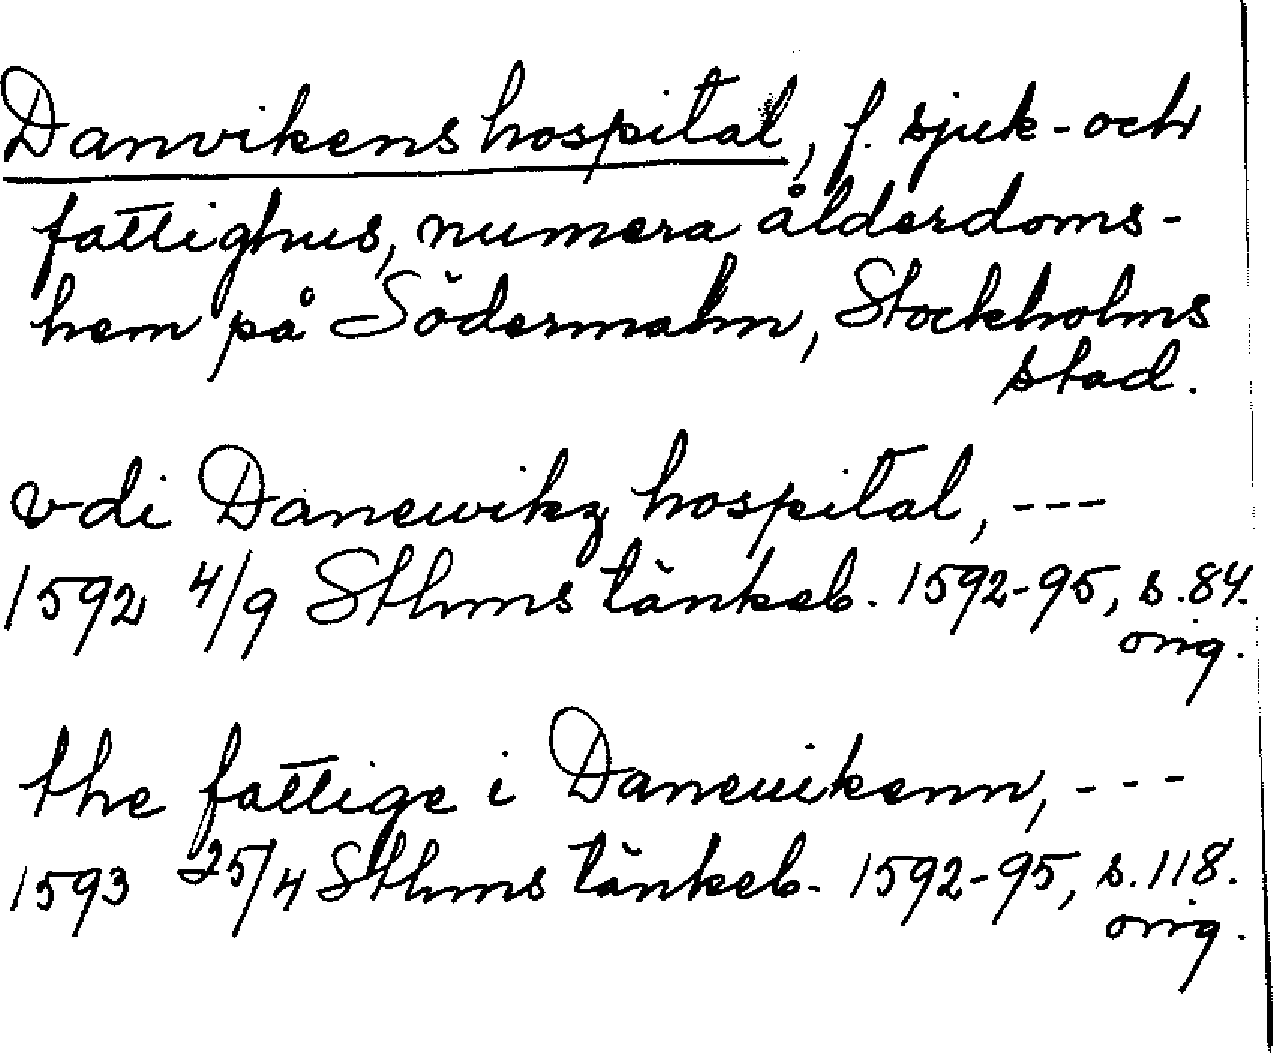 Danvikens hospital, f. sjuk- och
fattighus, numera ålderdoms-
hem på Södermalm, Stockholms
stad.
vdi Danewikz hospital, ---
1592 4/9 Sthms tänkeb. 1592-95, s. 84.
orig.
the fattige i Daneuikenn, ---
1593 25/4 Sthms tänkeb. 1592-95, s. 118.
orig.